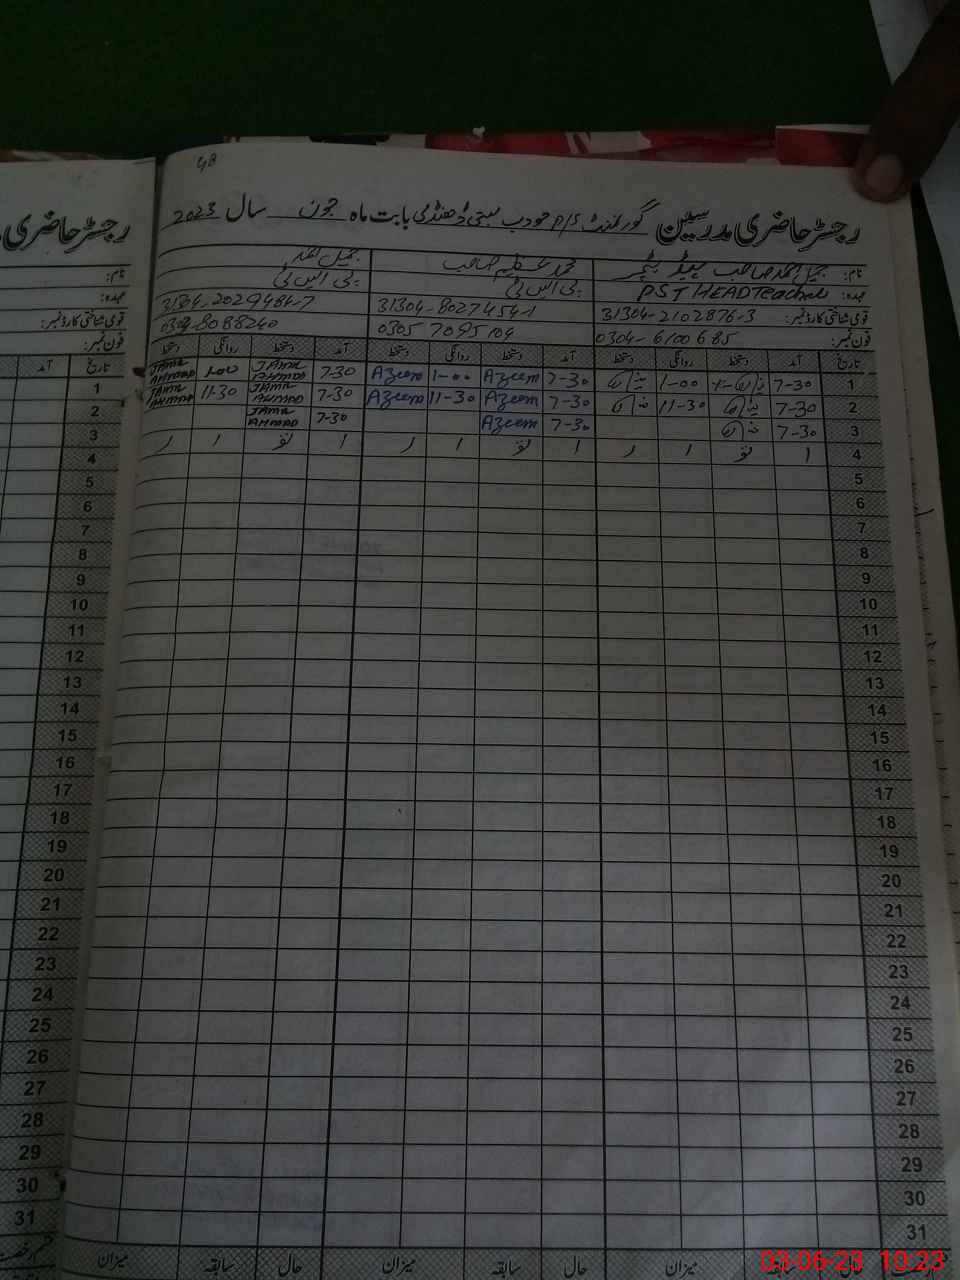 48
رجسٹر حاضری مدرسین گورنمنٹ P/S بابت ماہ جون سال 2023
رجسٹر حاضری
نام: محمد عظیم صاحب جمیل احمد
عہدہ: PST HEAD Teacher پی ایس ٹی پی ایس ٹی
قومی شناختی کارڈ نمبر: 31304-2102876-3 31304-8027454-1 31304-2029484-7
فون نمبر: 0304-6100685 0305 7095104 0304-8088240
تاریخ آمد دستخط روانگی دستخط آمد دستخط روانگی دستخط آمد دستخط روانگی دستخط
1 7-30 1-00 7-30 Azeem 1-00 Azeem 7-30 JAMIL AHMAD 1-00 JAMIL AHMAD
2 7-30 11-30 7-30 Azeem 11-30 Azeem 7-30 JAMIL AHMAD 11-30 JAMIL AHMAD
3 7-30 7-30 Azeem 7-30 JAMIL AHMAD
4 ا تو ا ر ا تو ا ر ا تو ا ر
5
6
7
8
9
10
11
12
13
14
15
16
17
18
19
20
21
22
23
24
25
26
27
28
29
30
31
میزان حال سابقہ میزان حال سابقہ میزان
نام:
عہدہ:
قومی شناختی کارڈ نمبر:
فون نمبر:
تاریخ آمد
1
2
3
4
5
6
7
8
9
10
11
12
13
14
15
16
17
18
19
20
21
22
23
24
25
26
27
28
29
30
31
03-06-23 10:23